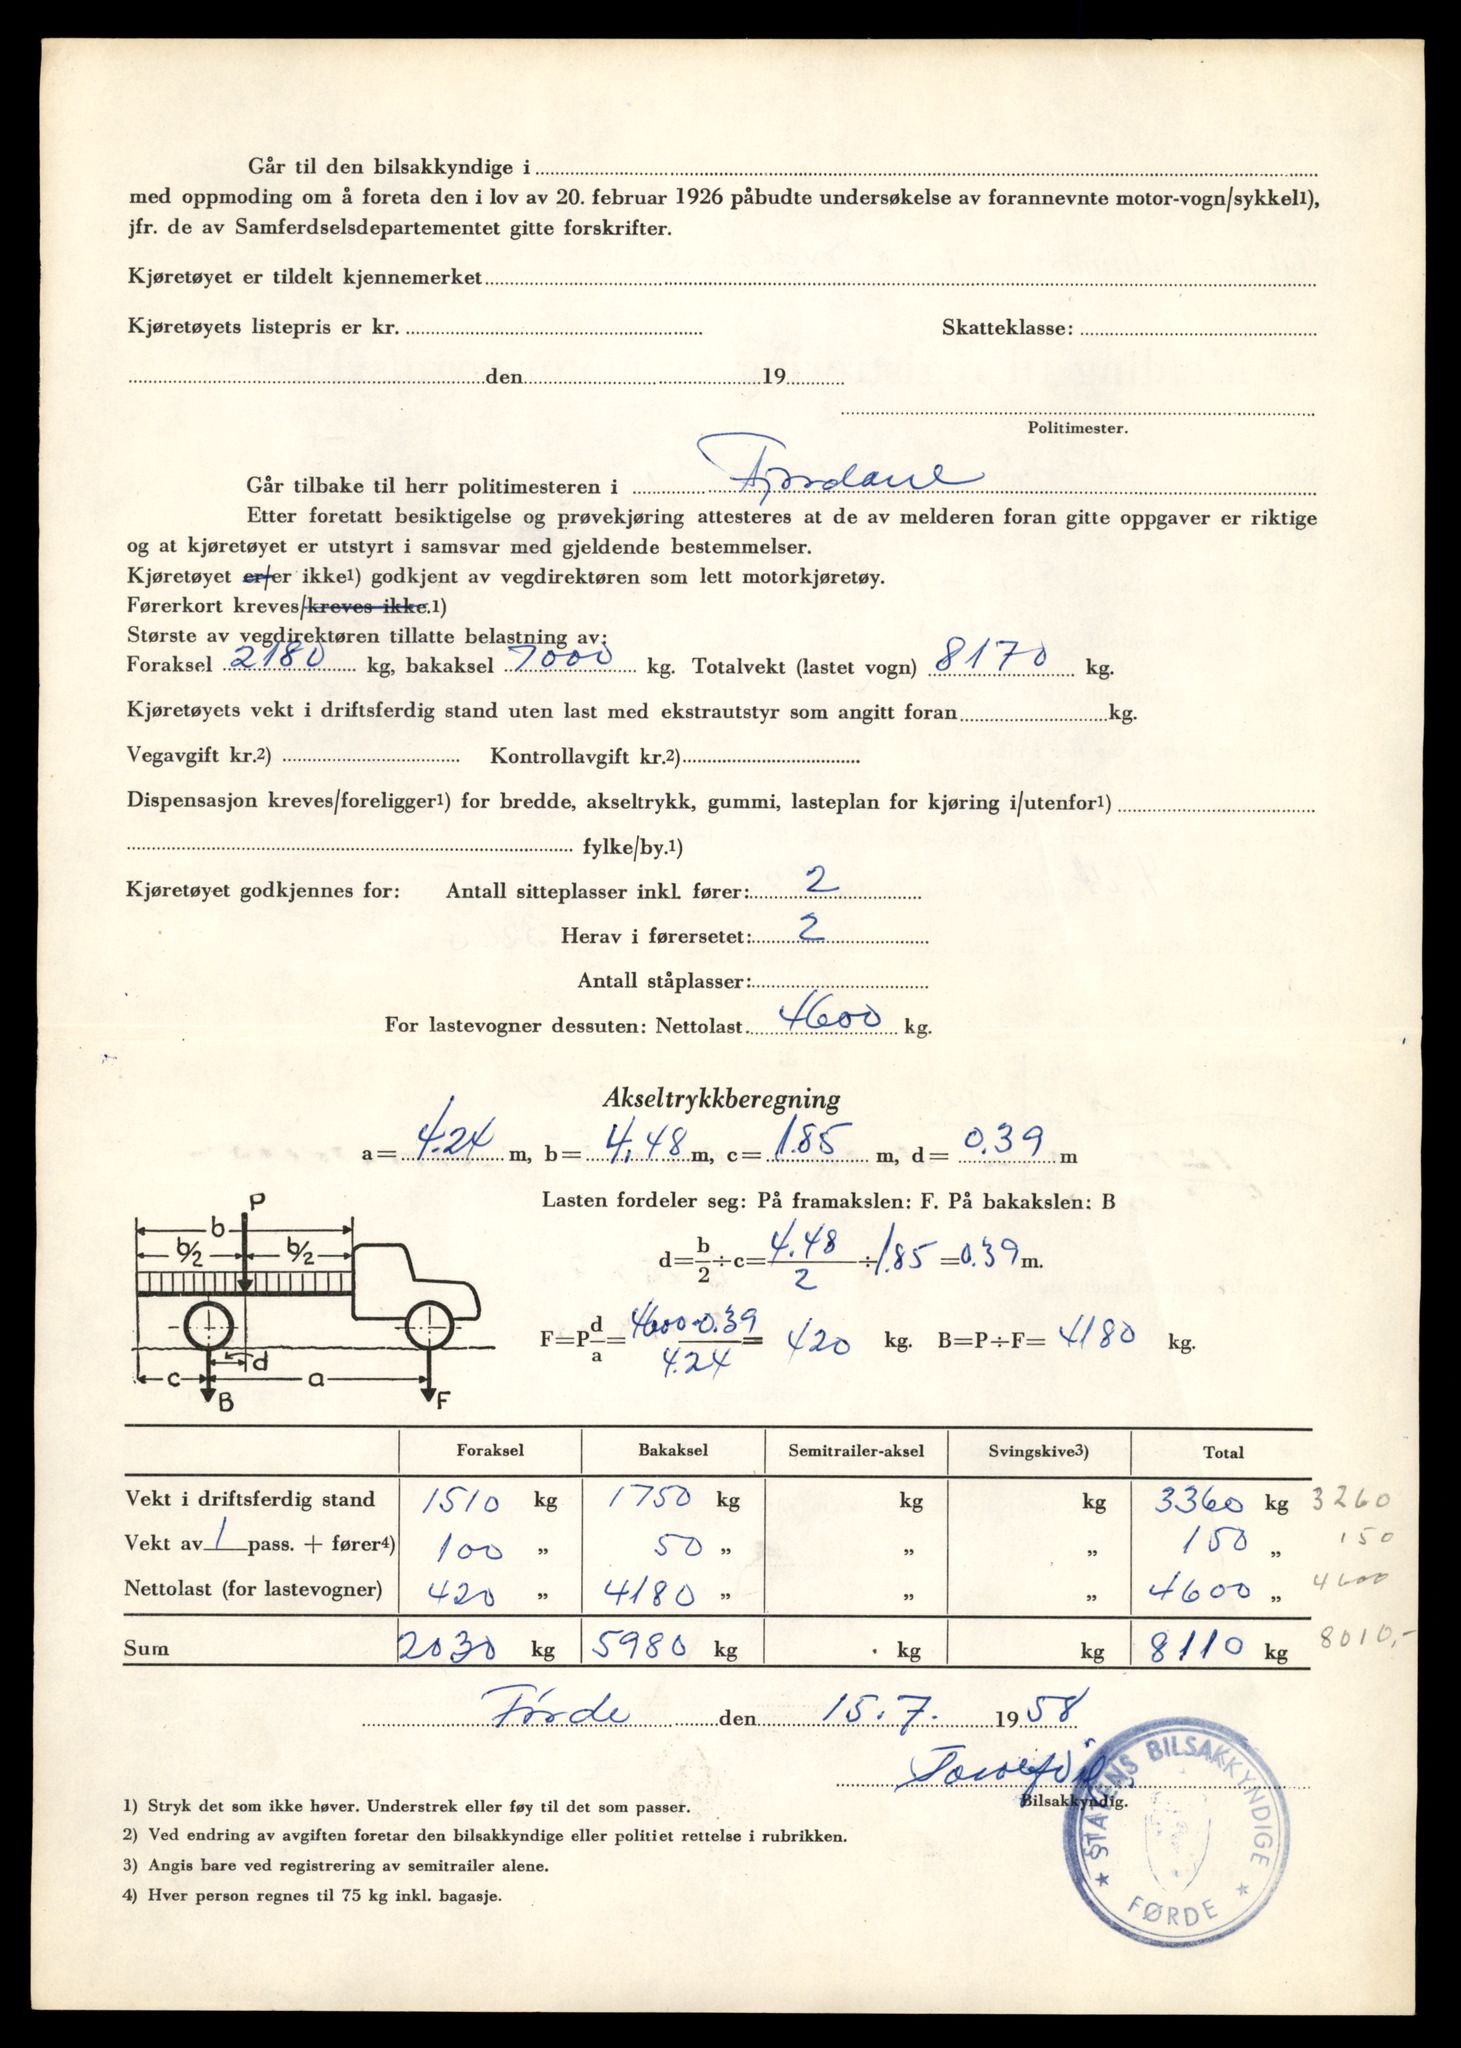 Går til den bilsakkyndige i
med oppmoding om å foreta den i lov av 20. februar 1926 påbudte undersøkelse av forannevnte motor-vogn/sykkel1),
jfr. de av Samferdselsdepartementet gitte forskrifter.
Kjøretøyet er tildelt kjennemerket
Kjøretøyets listepris er kr. Skatteklasse:
den 19
Politimester.
Går tilbake til herr politimesteren i Fjordane
Etter foretatt besiktigelse og prøvekjøring attesteres at de av melderen foran gitte oppgaver er riktige
og at kjøretøyet er utstyrt i samsvar med gjeldende bestemmelser.
Kjøretøyet er/er ikke1) godkjent av vegdirektøren som lett motorkjøretøy.
Førerkort kreves/kreves ikke.1)
Største av vegdirektøren tillatte belastning av:
Foraksel 2180 kg, bakaksel 7000 kg. Totalvekt (lastet vogn) 8170 kg.
Kjøretøyets vekt i driftsferdig stand uten last med ekstrautstyr som angitt foran kg.
Vegavgift kr.2) Kontrollavgift kr.2)
Dispensasjon kreves/foreligger1) for bredde, akseltrykk, gummi, lasteplan for kjøring i/utenfor1)
fylke/by.1)
Kjøretøyet godkjennes for: Antall sitteplasser inkl. fører: 2
Herav i førersetet: 2
Antall ståplasser:
For lastevogner dessuten: Nettolast 4600 kg.
Akseltrykkberegning
a= 4.24 m, b= 4,48 m, c= 1.85 m, d= 0.39 m
Lasten fordeler seg: På framakslen: F. På bakakslen: B
P
b
b/2 b/2
d=b/2÷c= 4.48/2 ÷ 1.85 = 0.39 m.
F=P d/a= 4600·0.39/4.24 = 420 kg. B=P÷F= 4180 kg.
d
c a
B F
Foraksel Bakaksel Semitrailer-aksel Svingskive3) Total
Vekt i driftsferdig stand 1510 kg 1750 kg kg kg 3360 kg 3260
Vekt av 1 pass. + fører4) 100 „ 50 „ „ „ 150 „ 150
Nettolast (for lastevogner) 420 „ 4180 „ „ „ 4600 „ 4600
Sum 2030 kg 5980 kg kg kg 8110 kg 8010,-
Førde den 15.7. 1958
Bilsakkyndig.
STATENS BILSAKKYNDIGE
FØRDE
1) Stryk det som ikke høver. Understrek eller føy til det som passer.
2) Ved endring av avgiften foretar den bilsakkyndige eller politiet rettelse i rubrikken.
3) Angis bare ved registrering av semitrailer alene.
4) Hver person regnes til 75 kg inkl. bagasje.